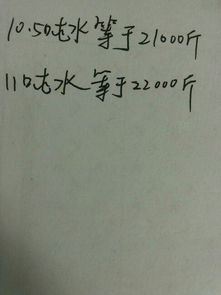 10.5吨水等于21000斤
11吨水等于22000斤